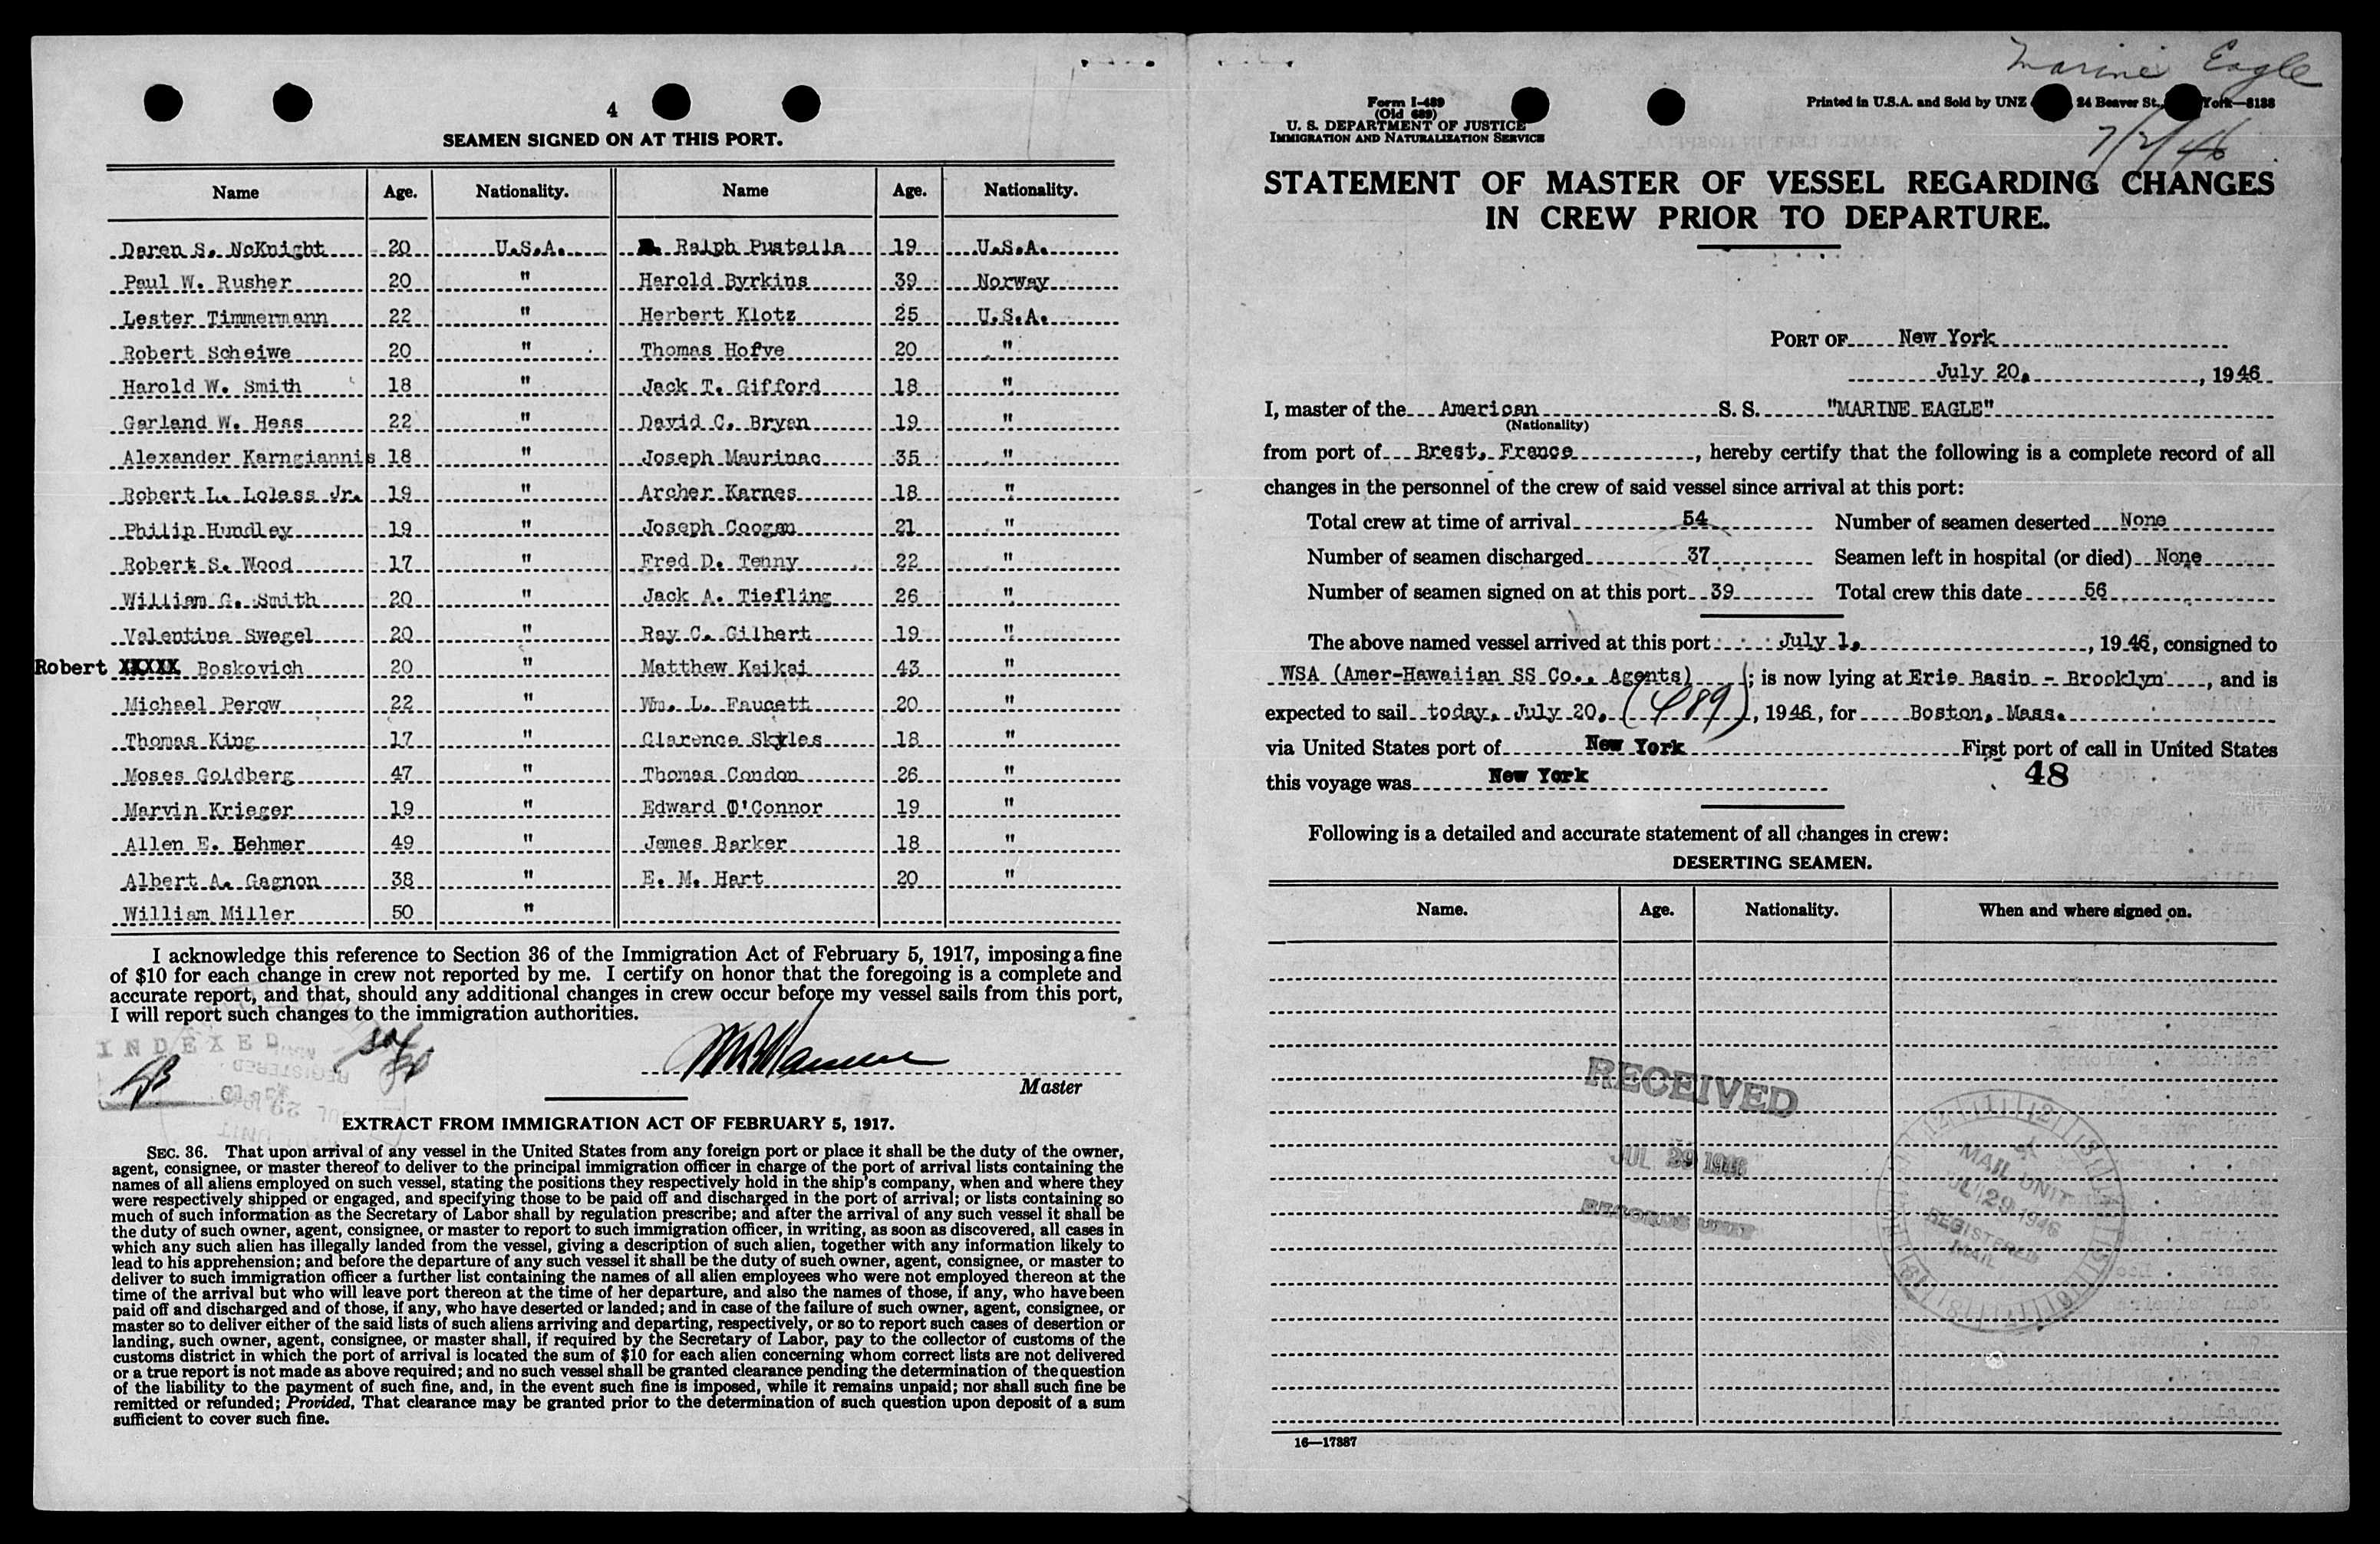 4
SEAMEN SIGNED ON AT THIS PORT.
Name Age. Nationality. Name Age. Nationality.
Daren S. McKnight 20 U.S.A. Ralph Pustella 19 U.S.A.
Paul W. Rusher 20 " Harold Byrkins 39 Norway
Lester Timmermann 22 " Herbert Klotz 25 U.S.A.
Robert Scheiwe 20 " Thomas Hofve 20 "
Harold W. Smith 18 " Jack T. Gifford 18 "
Garland W. Hess 22 " David C. Bryan 19 "
Alexander Karngiannis 18 " Joseph Maurinac 35 "
Robert L. Loless Jr. 19 " Archer Karnes 18 "
Philip Hundley 19 " Joseph Coogan 21 "
Robert S. Wood 17 " Fred D. Tenny 22 "
William G. Smith 20 " Jack A. Tiefling 26 "
Valentine Swegel 20 " Ray C. Gilbert 19 "
Robert XXXXX Boskovich 20 " Matthew Kaikai 43 "
Michael Perow 22 " Wm. L. Faucett 20 "
Thomas King 17 " Clarence Skyles 18 "
Moses Goldberg 47 " Thomas Condon 26 "
Marvin Krieger 19 " Edward O'Connor 19 "
Allen E. Behmer 49 " James Barker 18 "
Albert A. Gagnon 38 " E. M. Hart 20 "
William Miller 50 "
I acknowledge this reference to Section 36 of the Immigration Act of February 5, 1917, imposing a fine
of $10 for each change in crew not reported by me. I certify on honor that the foregoing is a complete and
accurate report, and that, should any additional changes in crew occur before my vessel sails from this port,
I will report such changes to the immigration authorities.
INDEXED
Master
EXTRACT FROM IMMIGRATION ACT OF FEBRUARY 5, 1917.
SEC. 36. That upon arrival of any vessel in the United States from any foreign port or place it shall be the duty of the owner,
agent, consignee, or master thereof to deliver to the principal immigration officer in charge of the port of arrival lists containing the
names of all aliens employed on such vessel, stating the positions they respectively hold in the ship's company, when and where they
were respectively shipped or engaged, and specifying those to be paid off and discharged in the port of arrival; or lists containing so
much of such information as the Secretary of Labor shall by regulation prescribe; and after the arrival of any such vessel it shall be
the duty of such owner, agent, consignee, or master to report to such immigration officer, in writing, as soon as discovered, all cases in
which any such alien has illegally landed from the vessel, giving a description of such alien, together with any information likely to
lead to his apprehension; and before the departure of any such vessel it shall be the duty of such owner, agent, consignee, or master to
deliver to such immigration officer a further list containing the names of all alien employees who were not employed thereon at the
time of the arrival but who will leave port thereon at the time of her departure, and also the names of those, if any, who have been
paid off and discharged and of those, if any, who have deserted or landed; and in case of the failure of such owner, agent, consignee, or
master so to deliver either of the said lists of such aliens arriving and departing, respectively, or so to report such cases of desertion or
landing, such owner, agent, consignee, or master shall, if required by the Secretary of Labor, pay to the collector of customs of the
customs district in which the port of arrival is located the sum of $10 for each alien concerning whom correct lists are not delivered
or a true report is not made as above required; and no such vessel shall be granted clearance pending the determination of the question
of the liability to the payment of such fine, and, in the event such fine is imposed, while it remains unpaid; nor shall such fine be
remitted or refunded; Provided, That clearance may be granted prior to the determination of such question upon deposit of a sum
sufficient to cover such fine.
Marine Eagle
Form I-489
(Old 689)
U. S. DEPARTMENT OF JUSTICE
IMMIGRATION AND NATURALIZATION SERVICE
Printed in U.S.A. and Sold by UNZ 24 Beaver St., York—8138
7/2/46
STATEMENT OF MASTER OF VESSEL REGARDING CHANGES
IN CREW PRIOR TO DEPARTURE.
PORT OF New York
July 20, , 1946
I, master of the American S. S. "MARINE EAGLE"
(Nationality)
from port of Brest, France , hereby certify that the following is a complete record of all
changes in the personnel of the crew of said vessel since arrival at this port:
Total crew at time of arrival 54 Number of seamen deserted None
Number of seamen discharged 37 Seamen left in hospital (or died) None
Number of seamen signed on at this port 39 Total crew this date 56
The above named vessel arrived at this port July 1, , 1946, consigned to
WSA (Amer-Hawaiian SS Co., Agents) ; is now lying at Erie Basin - Brooklyn , and is
expected to sail today, July 20, (489) , 1946, for Boston, Mass.
via United States port of New York First port of call in United States
this voyage was New York 48
Following is a detailed and accurate statement of all changes in crew:
DESERTING SEAMEN.
Name. Age. Nationality. When and where signed on.
RECEIVED
JUL 29 1946
RECORDS UNIT
MAIL UNIT
JUL 29 1946
REGISTERED
MAIL
16—17387